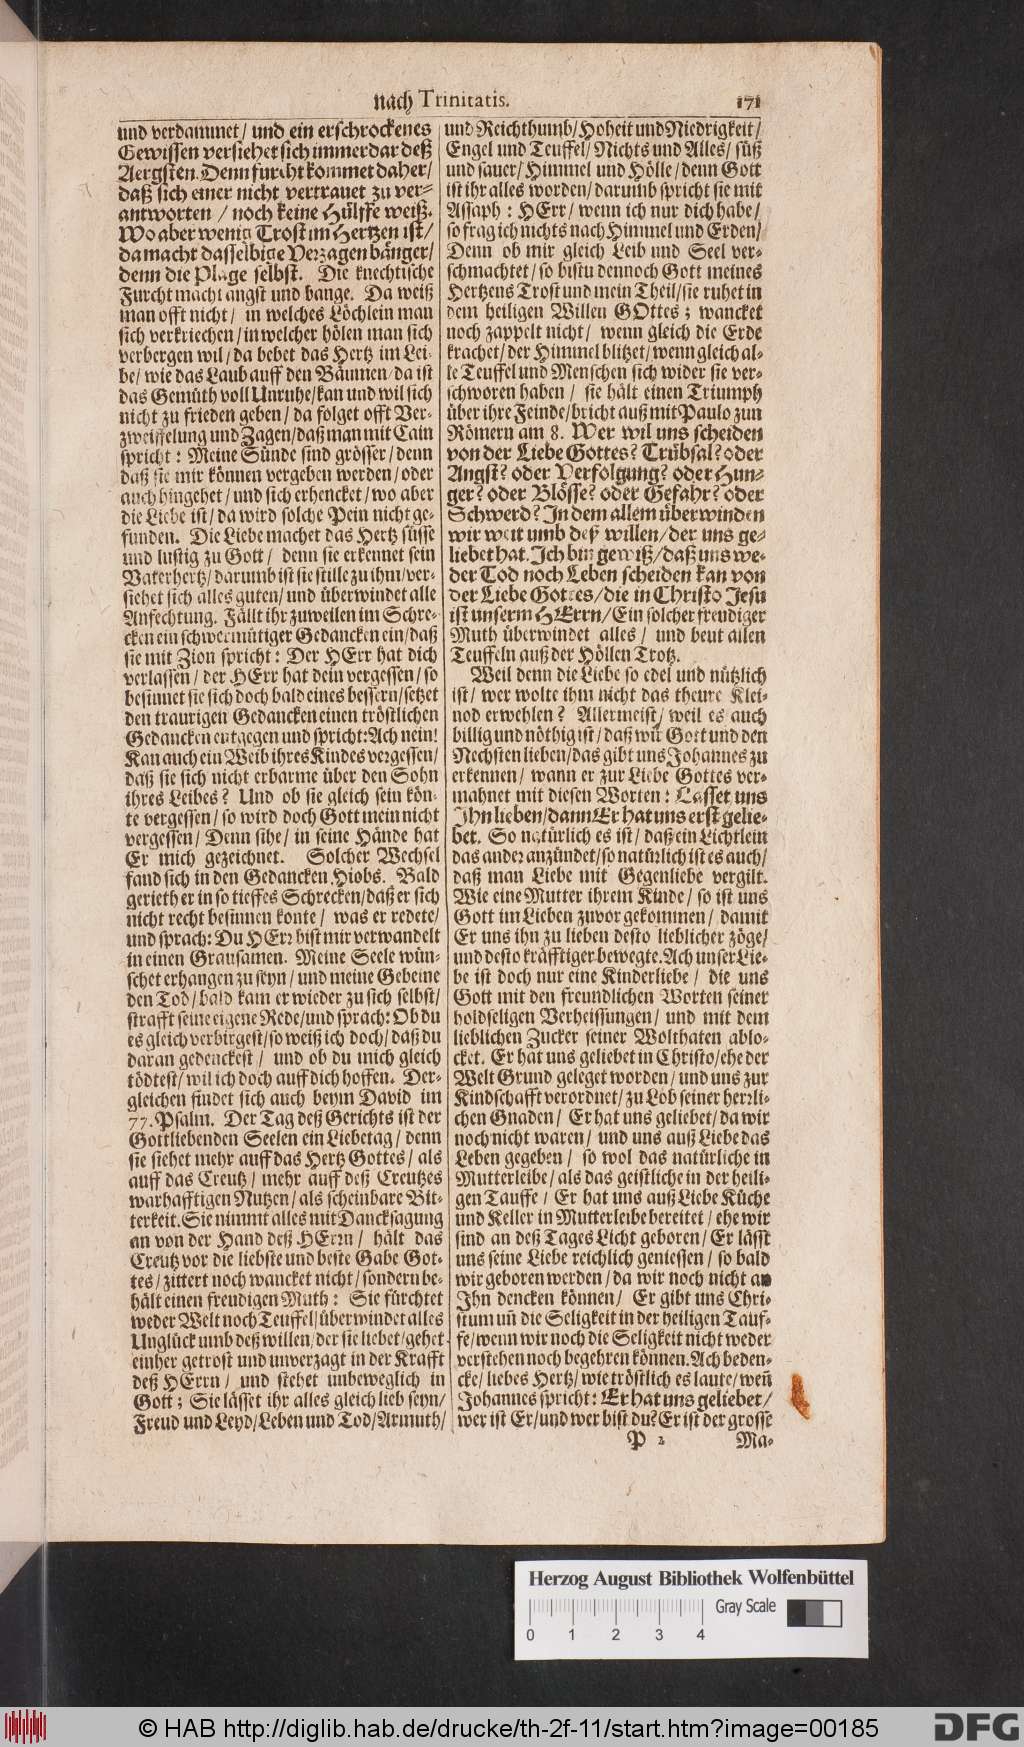 nach Trinitatis. 171
und verdammet/ und ein erschrockenes
Gewissen versiehet sich immerdar deß
Aergsten. Denn furcht kommet daher/
daß sich einer nicht vertrauet zu ver-
antworten / noch keine Hülffe weiß.
Wo aber wenig Trost im Hertzen ist/
da macht dasselbige Verzagen bänger/
denn die Plage selbst. Die knechtische
Furcht macht angst und bange. Da weiß
man offt nicht/ in welches Löchlein man
sich verkriechen/ in welcher hölen man sich
verbergen wil/ da bebet das Hertz im Lei-
be/ wie das Laub auff den Bäumen/ da ist
das Gemüth voll Unruhe/ kan und wil sich
nicht zu frieden geben/ da folget offt Ver-
zweiffelung und Zagen/ daß man mit Cain
spricht: Meine Sünde sind grösser/ denn
daß sie mir können vergeben werden/ oder
auch hingehet/ und sich erhencket/ wo aber
die Liebe ist/ da wird solche Pein nicht ge-
funden. Die Liebe machet das Hertz süsse
und lustig zu Gott/ denn sie erkennet sein
Vaterhertz/ darumb ist sie stille zu ihm/ ver-
siehet sich alles guten/ und überwindet alle
Anfechtung. Fällt ihr zuweilen im Schre-
cken ein schwermütiger Gedancken ein/ daß
sie mit Zion spricht: Der HErr hat dich
verlassen/ der HErr hat dein vergessen/ so
besinnet sie sich doch bald eines bessern/ setzet
den traurigen Gedancken einen tröstlichen
Gedancken entgegen und spricht: Ach nein!
Kan auch ein Weib ihres Kindes vergessen/
daß sie sich nicht erbarme über den Sohn
ihres Leibes? Und ob sie gleich sein kön-
te vergessen/ so wird doch Gott mein nicht
vergessen/ Denn sihe/ in seine Hände hat
Er mich gezeichnet. Solcher Wechsel
fand sich in den Gedancken Hiobs. Bald
gerieth er in so tieffes Schrecken/ daß er sich
nicht recht besinnen konte/ was er redete/
und sprach: Du HErr bist mir verwandelt
in einen Grausamen. Meine Seele wün-
schet erhangen zu seyn/ und meine Gebeine
den Tod/ bald kam er wieder zu sich selbst/
strafft seine eigene Rede/ und sprach: Ob du
es gleich verbirgest/ so weiß ich doch/ daß du
daran gedenckest/ und ob du mich gleich
tödtest/ wil ich doch auff dich hoffen. Der-
gleichen findet sich auch beym David im
77. Psalm. Der Tag deß Gerichts ist der
Gottliebenden Seelen ein Liebetag/ denn
sie siehet mehr auff das Hertz Gottes/ als
auff das Creutz/ mehr auff deß Creutzes
warhafftigen Nutzen/ als scheinbare Bit-
terkeit. Sie nimmt alles mit Dancksagung
an von der Hand deß HErrn/ hält das
Creutz vor die liebste und beste Gabe Got-
tes/ zittert noch wancket nicht/ sondern be-
hält einen freudigen Muth: Sie fürchtet
weder Welt noch Teuffel/ überwindet alles
Unglück umb deß willen/ der sie liebet/ gehet
einher getrost und unverzagt in der Krafft
deß HErrn/ und stehet unbeweglich in
Gott; Sie lässet ihr alles gleich lieb seyn/
Freud und Leyd/ Leben und Tod/ Armuth/
und Reichthumb/ Hoheit und Niedrigkeit/
Engel und Teuffel/ Nichts und Alles/ süß
und sauer/ Himmel und Hölle/ denn Gott
ist ihr alles worden/ darumb spricht sie mit
Assaph: HErr/ wenn ich nur dich habe/
so frag ich nichts nach Himmel und Erden/
Denn ob mir gleich Leib und Seel ver-
schmachtet/ so bistu dennoch Gott meines
Hertzens Trost und mein Theil/ sie ruhet in
dem heiligen Willen GOttes; wancket
noch zappelt nicht/ wenn gleich die Erde
krachet/ der Himmel blitzet/ wenn gleich al-
le Teuffel und Menschen sich wider sie ver-
schworen haben/ sie hält einen Triumph
über ihre Feinde/ bricht auß mit Paulo zun
Römern am 8. Wer wil uns scheiden
von der Liebe Gottes? Trübsal? oder
Angst? oder Verfolgung? oder Hun-
ger? oder Blösse? oder Gefahr? oder
Schwerd? In dem allem überwinden
wir weit umb deß willen/ der uns ge-
liebet hat. Ich bin gewiß/ daß uns we-
der Tod noch Leben scheiden kan von
der Liebe Gottes/ die in Christo Jesu
ist unserm HErrn/ Ein solcher freudiger
Muth überwindet alles/ und beut allen
Teuffeln auß der Höllen Trotz.
Weil denn die Liebe so edel und nützlich
ist/ wer wolte ihm nicht das theure Klei-
nod erwehlen? Allermeist/ weil es auch
billig und nöthig ist/ daß wir Gott und den
Nechsten lieben/ das gibt uns Johannes zu
erkennen/ wann er zur Liebe Gottes ver-
mahnet mit diesen Worten: Lasset uns
Ihn lieben/ dann Er hat uns erst gelie-
bet. So natürlich es ist/ daß ein Lichtlein
das ander anzündet/ so natürlich ist es auch/
daß man Liebe mit Gegenliebe vergilt.
Wie eine Mutter ihrem Kinde/ so ist uns
Gott im Lieben zuvor gekommen/ damit
Er uns ihn zu lieben desto lieblicher zöge/
und desto kräfftiger bewegte. Ach unser Lie-
be ist doch nur eine Kinderliebe/ die uns
Gott mit den freundlichen Worten seiner
holdseligen Verheissungen/ und mit dem
lieblichen Zucker seiner Wolthaten ablo-
cket. Er hat uns geliebet in Christo/ ehe der
Welt Grund geleget worden/ und uns zur
Kindschafft verordnet/ zu Lob seiner herrli-
chen Gnaden/ Er hat uns geliebet/ da wir
noch nicht waren/ und uns auß Liebe das
Leben gegeben/ so wol das natürliche in
Mutterleibe/ als das geistliche in der heili-
gen Tauffe/ Er hat uns auß Liebe Küche
und Keller in Mutterleibe bereitet/ ehe wir
sind an deß Tages Licht geboren/ Er lässt
uns seine Liebe reichlich geniessen/ so bald
wir geboren werden/ da wir noch nicht an
Ihn dencken können/ Er gibt uns Chri-
stum uñ die Seligkeit in der heiligen Tauf-
fe/ wenn wir noch die Seligkeit nicht weder
verstehen noch begehren können. Ach beden-
cke/ liebes Hertz/ wie tröstlich es laute/ weñ
Johannes spricht: Er hat uns geliebet/
wer ist Er/ und wer bist du? Er ist der grosse
P 2 Ma-
Herzog August Bibliothek Wolfenbüttel
Gray Scale
0 1 2 3 4
© HAB http://diglib.hab.de/drucke/th-2f-11/start.htm?image=00185
DFG